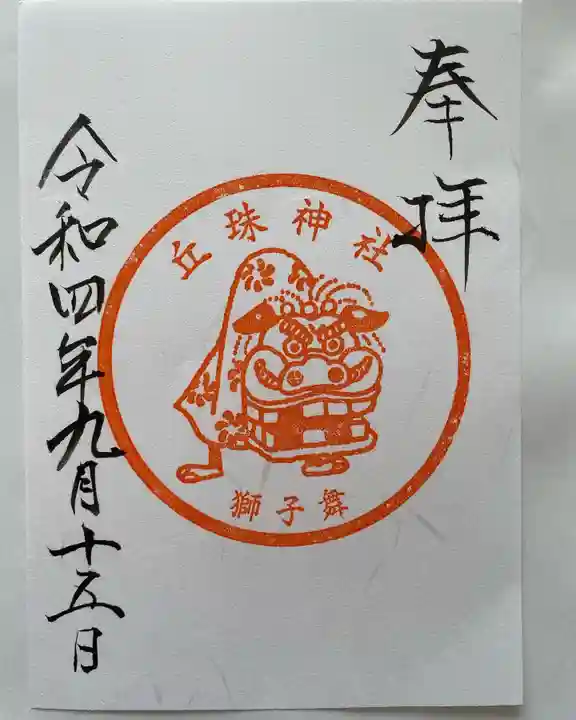 奉拝
丘珠神社
獅子舞
令和四年九月十五日